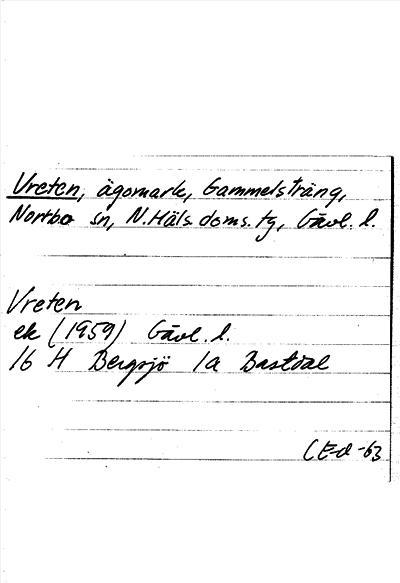 Vreten, ägomark, Gammelsträng,
Norrbo sn, N.Häls doms.tg, Gävl. l.
Vreten
ek (1959) Gävl. l.
16 H Bergsjö 1a Bastdal
CE-d -63